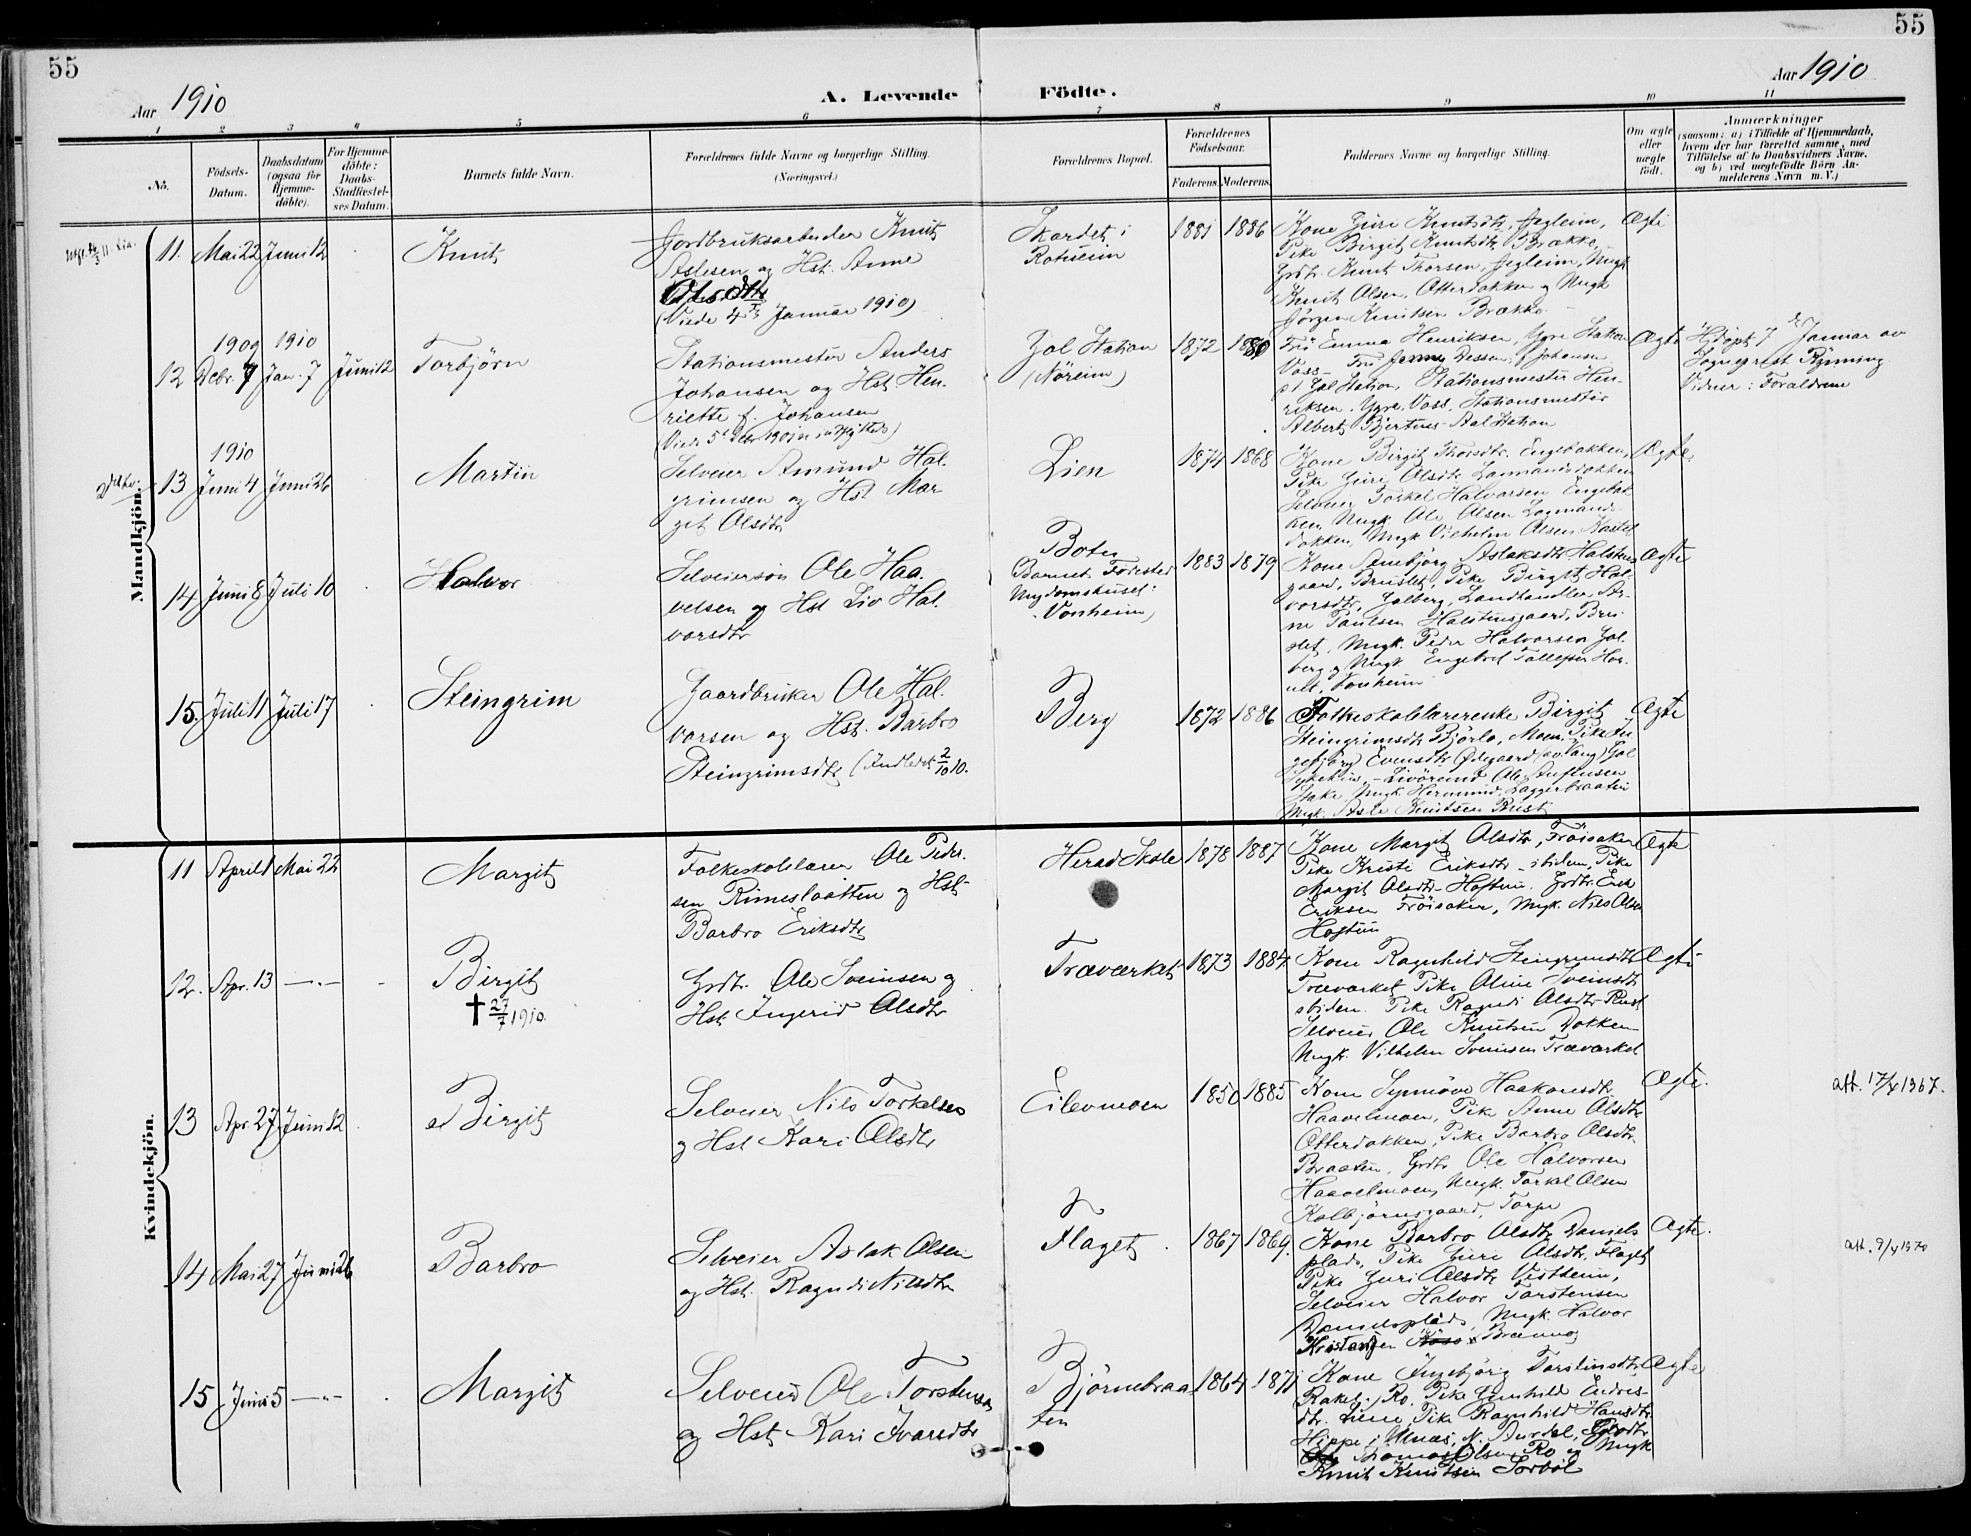 55
55
Aar 1910
A. Levende Födte.
Aar 1910
1 2 3 4 5 6 7 8 9 10 11
No.
Födsels-Datum.
Daabsdatum (ogsaa for Hjemme-döbte).
For Hjemme-döbte: Daabs-Stadfæstel-ses Datum.
Barnets fulde Navn.
Forældrenes fulde Navne og borgerlige Stilling.
(Næringsvei.)
Forældrenes Bopæl.
Forældrenes Födselsaar.
Faderens. Moderens.
Faddernes Navne og borgerlige Stilling.
Om ægte eller uægte födt.
Anmærkninger
(saasom: a) i Tilfælde af Hjemmedaab, hvem der har forrettet samme, med Tilföielse af to Daabsvidners Navne, og b) ved uægtefödte Börn Anmelderens Navn m. V.)
Mandkjön.
11. Mai 22 Juni 12
Knut
Jordbruksarbeider Knut
Aslesen og Hst. Anne
Olsdtr
(Viede 4de Januar 1910)
Skardet i
Rotneim
1881 1886
Kone Guri Knutsdtr. Jegleim,
Pike Birgit Knutsdtr. Brække,
Grdbr. Knut Thorsen, Jegleim, Ungk.
Knut Olsen, Otterdokken og Ungk
Jörgen Knutsen Brække
Ægte
1909 1910
12 Decbr. 7 Jan. 7 Juni 12
Torbjörn
Stationsmester Anders
Johansen og Hst. Hen-
riette f. Johansen
Gol Station
(Nöreim)
1872 1880
Fru Emma Henriksen, Ygre Station
Voss
p.t. Gol Station, Stationsmester Hen-
riksen, Ygre, Voss, Stationsmester
Albert Bjertnes Aal Station
Ægte
Hjdöpt 7de Januar av
Sogneprest Rynning
Vidner: Forældrene
1910
13 Juni 4 Juni 26
Martin
Selveier Amund Hal-
grimsen og Hst Mar
git Olsdtr
Lien
1874 1868
Kone Birgit Thorsdtr. Engebakken,
Pike Guri Olsdtr. Lagmandsdokken
Selveier Torkel Halvorsen Engebak
ken, Ungk. Ole Olsen Lagmands-
dokken, Ungk Vilhelm Olsen
Ægte
14 Juni 8 Juli 10
Halvor
Selveiersön Ole Haa-
velsen og Hst Liv Hal-
vorsdtr
Boten
Barnet Födested
Ungdomshuset
Vonheim)
1883 1879
Kone Sembjörg Aslaksdtr Halstens
gaard, Bruslet, Pike Birgit Hal-
vorsdtr, Golberg, Landhandler Ar-
ne Paulsen Halstensgaard, Bru-
slet, Ungk. Peder Halvorsen Gol-
berg og Ungk Engebret Tollefsen
Vonheim
Ægte
15. Juli 11 Juli 17
Steingrim
Gaardbruker Ole Hal-
vorsen og Hst. Barbro
Steingrimsdtr (Indledet 2/10 10.
Berg
1872 1886
Folkeskolelærerinke Birgit
Steingrimsdtr Björlo, Moen, Pike In-
gebjörg Evensdtr Ödegaard (av Vang) Gol
Ole
Stake, Ungk Hermund Laggerbraaten
Ungk. Asle Knutsen Rust
Ægte
Kvindekjön.
11 April 1 Mai 22
Margit
Folkeskolelærer Ole Peder-
sen Rimeslaatten og Hst
Barbro Eriksdtr
Herad Skole
1878 1887
Kone Margit Olsdtr, Fröisaker
Pike Kristi Eriksdtr ibidem, Pike
Margit Olsdtr Hoftun. Grdbr. Erik
Eriksen Fröisaker, Ungk. Nils Olsen
Hoftun
Ægte
12. Apr. 13 — " —
Birgit
† 27/7 1910.
Grdbr. Ole Svensen og
Hst Ingerid Olsdtr
Træværket
1873 1884
Kone Ragnhild Steingrimsdtr
Træværket Pike Oline Svensdtr
ibidem. Pike Ragndi Olsdtr Rust
Selveier Ole Knutsen Dokken
Ungk. Vilhelm Svensen Træværket
Ægte
13 Apr. 27 Juni 12
Birgit
Selveier Nils Torkelsen
og Hst Kari Olsdtr
Eilevmoen
1850 1885
Kone Synnöve Haakonsdtr
Haavelmoen, Pike Anne Olsdtr
Otterdokken, Pike Barbro Olsdtr.
Braaten, Grdbr Ole Halvorsen
Haavelmoen, Ungk. Torkel Olsen
Kolbjörnsgaard, Torpe
Ægte.
att. 17/4 1967.
14 Mai 27 Juni 26
Barbro
Selveier Aslak Olsen
og Hst. Ragndi Nilsdtr
Flaget
1867 1869.
Kone Barbro Olsdtr Daniels
plads, Pike Guri Olsdtr, Flaget
Pike Guri Olsdtr Vestheim,
Selveier Halvor Torstensen
Danielsplads, Ungk. Halvor
Kristansen Brenno
Ægte.
att. 9/4 1970
15 Juni 5 — " —
Margit
Selveier Ole Torstensen
og Hst Kari Ivarsdtr
Björnebraa-
ten
1864 1871
Kone Ingebjörg Torstensdtr
Ro. Pike Gunhild Endres-
dtr. Pike Ragnhild Hansdtr.
N. Aurdal,
Tromas Olsen Ro og Ungk
Knut Knutsen Sorböl
Ægte